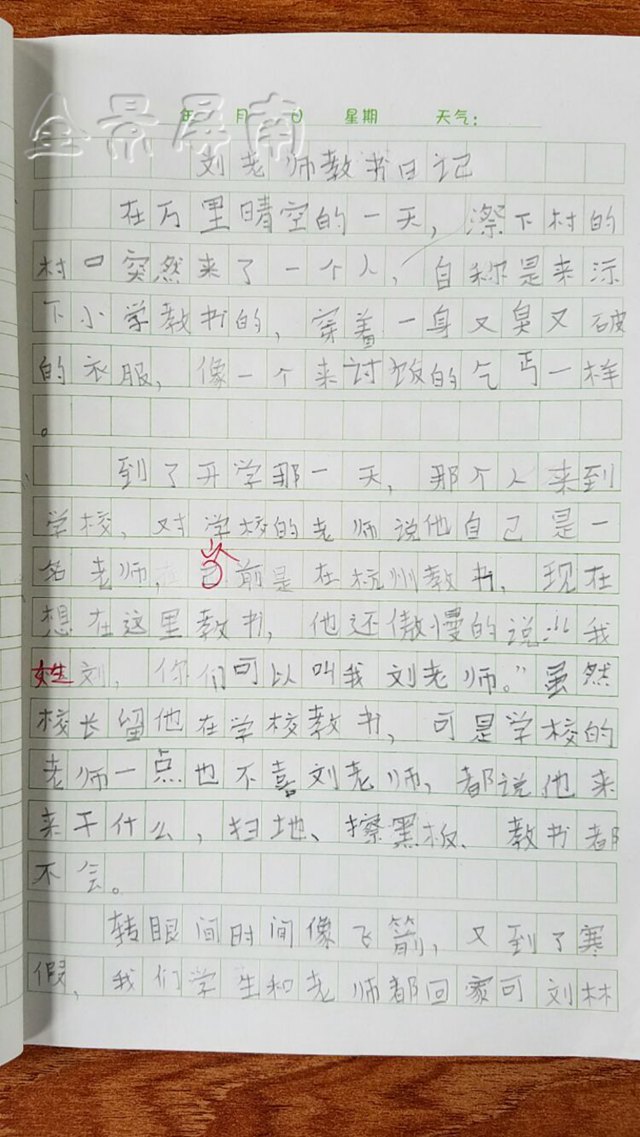 全景屏南
年 月 日 星期 天气:
刘老师教书日记
在万里晴空的一天,漈下村的
村口突然来了一个人,自称是来漈
下小学教书的,穿着一身又臭又破
的衣服,像一个来讨饭的乞丐一样
。
到了开学那一天,那个人来到
学校,对学校的老师说他自己是一
名老师,前是在杭州教书,现在
想在这里教书,他还傲慢的说:“我
姓刘,你们可以叫我刘老师。”虽然
校长留他在学校教书,可是学校的
老师一点也不喜刘老师,都说他来
来干什么,扫地、擦黑板、教书都
不会。
转眼间时间像飞箭,又到了寒
假,我们学生和老师都回家可刘林